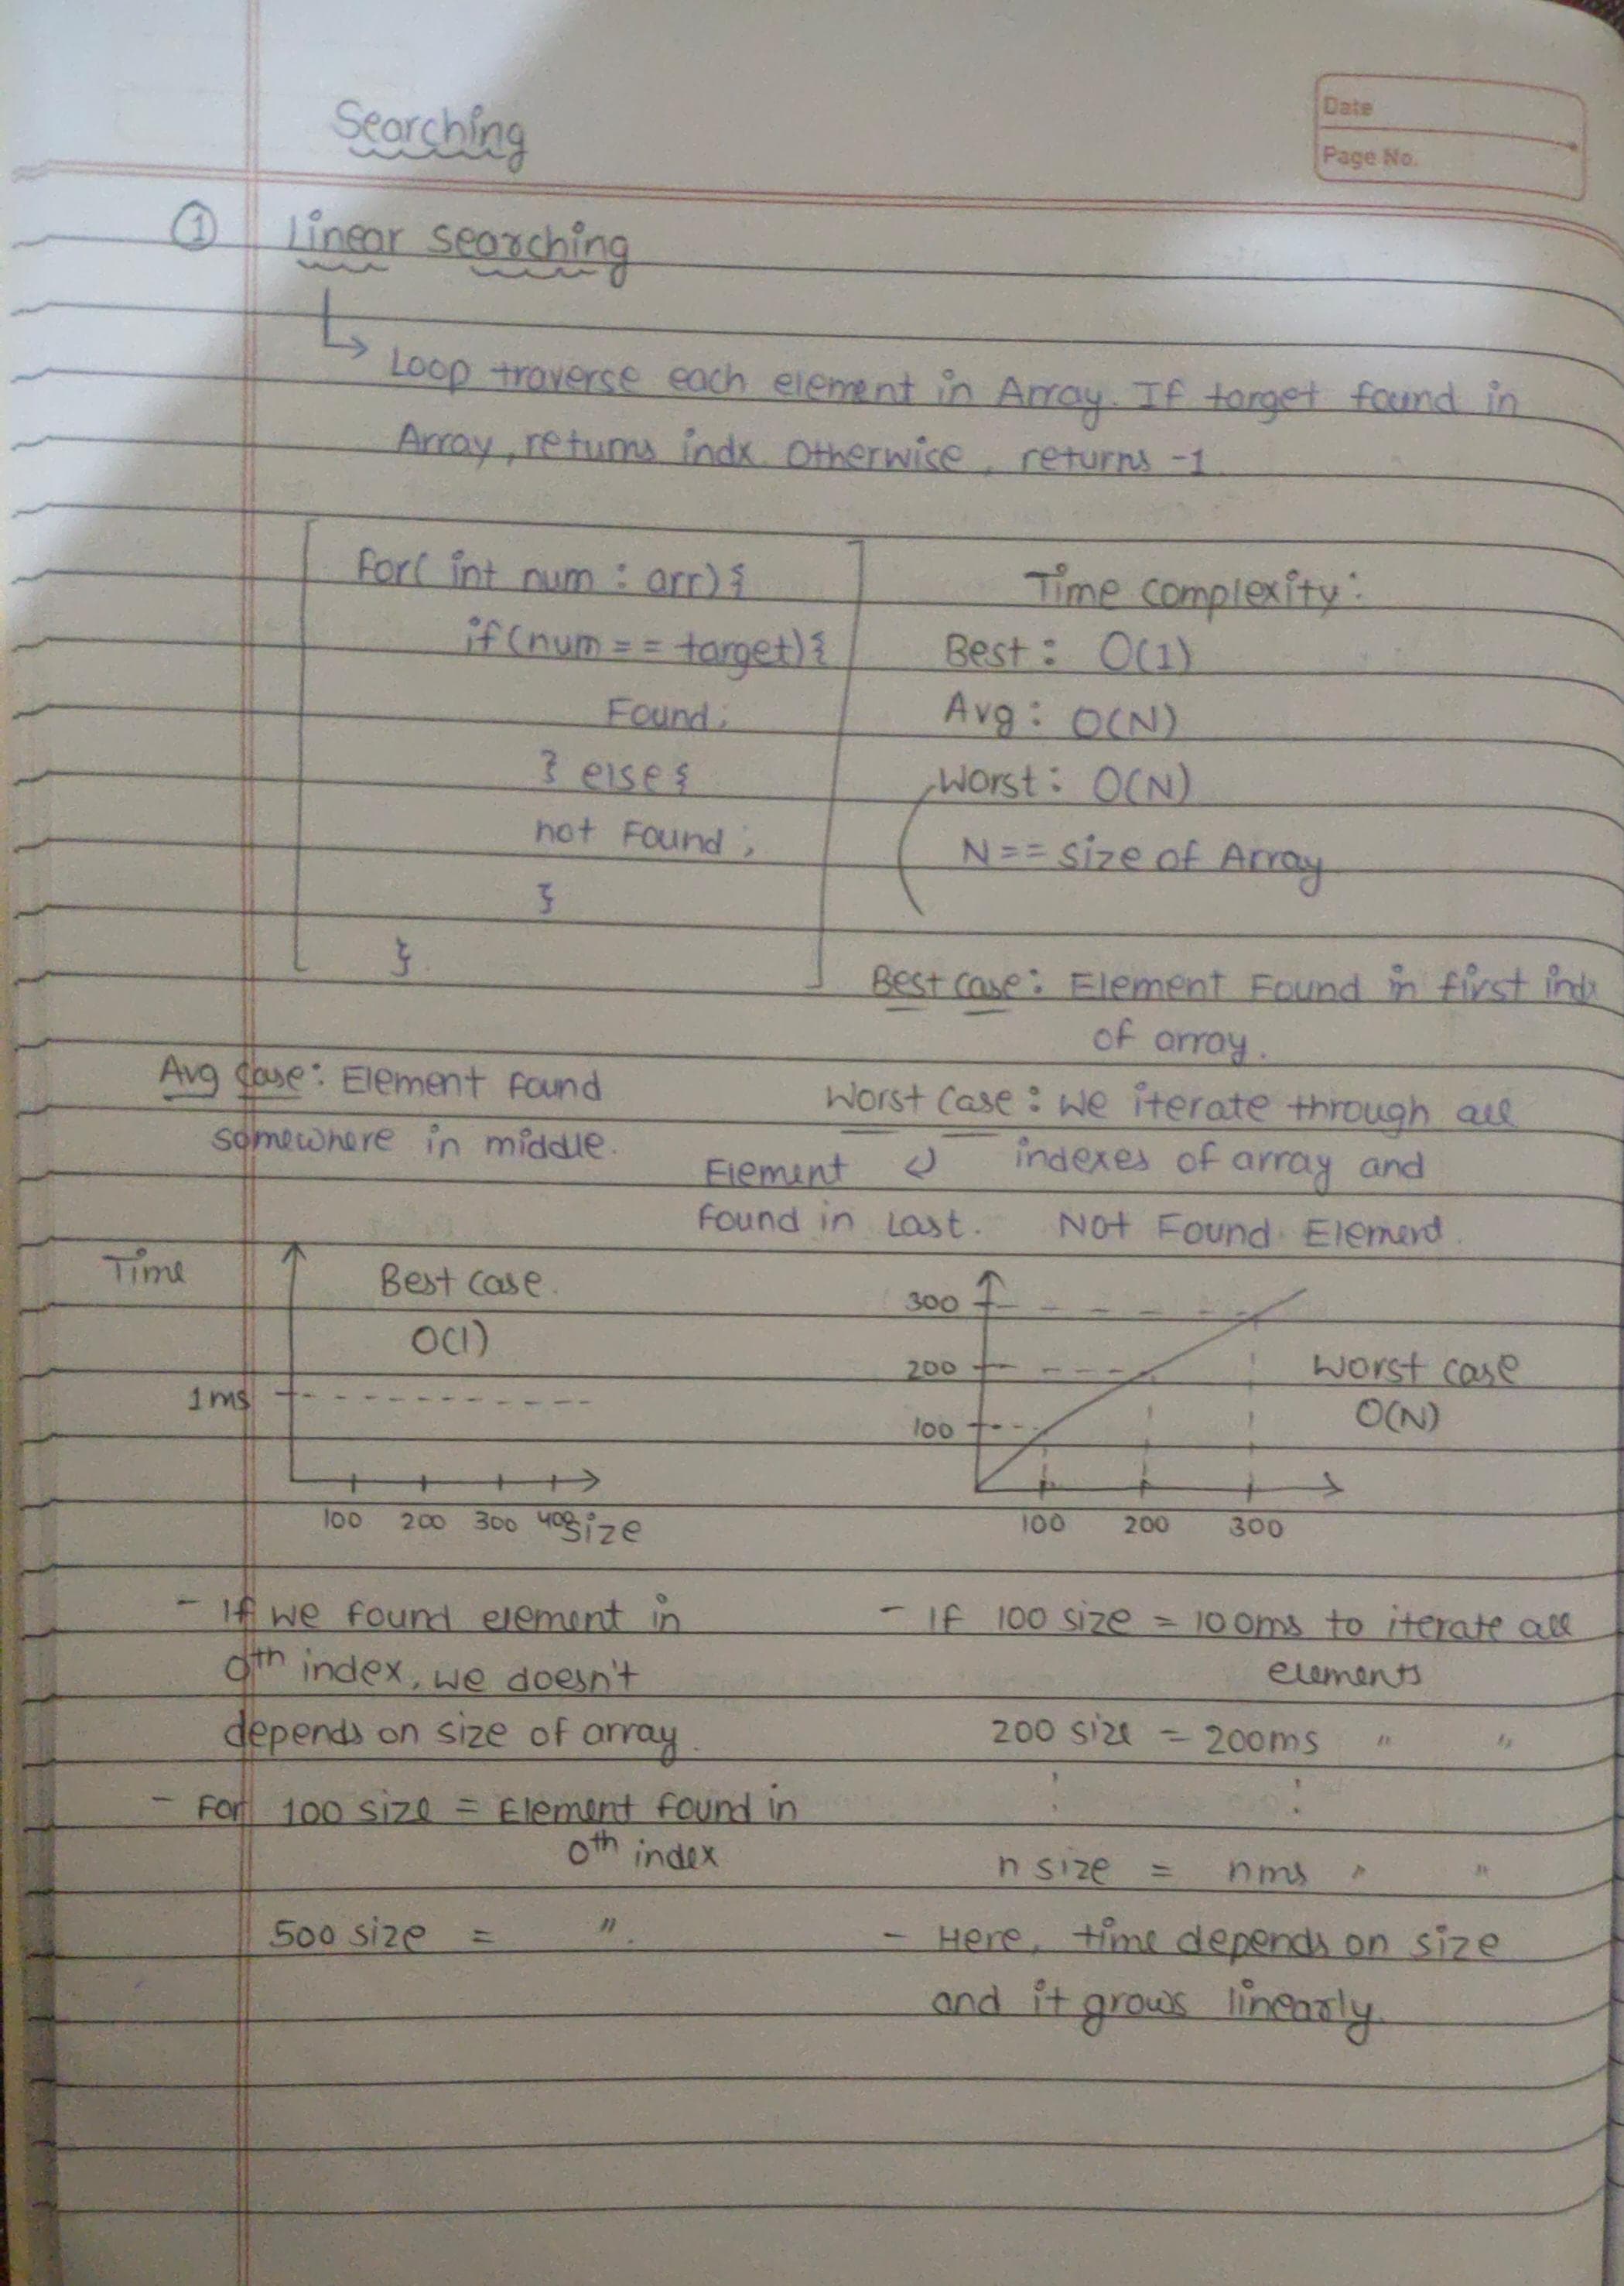 Searching
Date
Page No.
① Linear searching
↳ Loop traverse each element in Array. If target found in
Array, returns indx. Otherwise, returns -1
For( int num : arr) {
if (num == target) {
Found;
} else {
not Found;
}
}
Time complexity:
Best: O(1)
Avg: O(N)
Worst: O(N)
N == size of Array
Best case: Element Found in first indx
of array.
Avg case: Element found
somewhere in middle.
Worst case: we iterate through all
indexes of array and
Element
found in Last.
Not Found Element
Time
Best case.
O(1)
1ms
100 200 300 400
size
300
200
100
Worst case
O(N)
100 200 300
- If we found element in
0th index, we doesn't
depends on size of array.
- For 100 size = Element found in
0th index
500 size = ".
- If 100 size = 100ms to iterate all
elements
200 size = 200ms " "
: :
n size = nms " "
- Here, time depends on size
and it grows linearly.